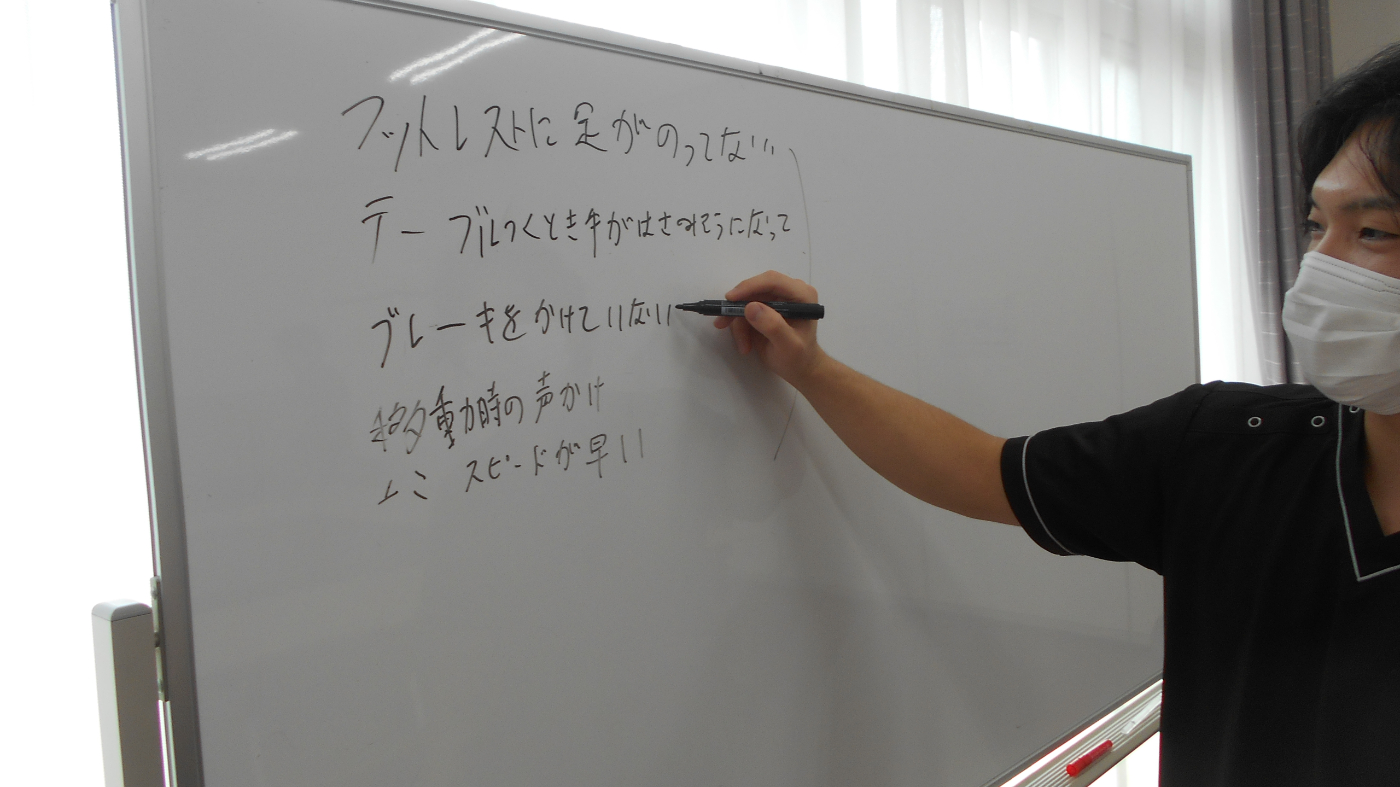 フットレストに足がのってない
テーブルつくとき手がはさみそうになって
ブレーキをかけていない
移動時の声かけ
〃ミ スピードが早い